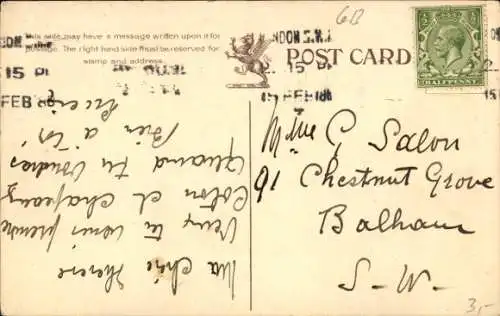 This side may have a message written upon it for
postage. The right hand side must be reserved for
stamp and address.
POST CARD
LONDON S.W.1
2.15 PM
15 FEB
6B
Mme G Salon
91 Chestnut Grove
Balham
S-W-
3,-
Ma chère Therese
Veux tu venir prendre
Coton et chapeaux
Quand tu voudras
Bien à toi